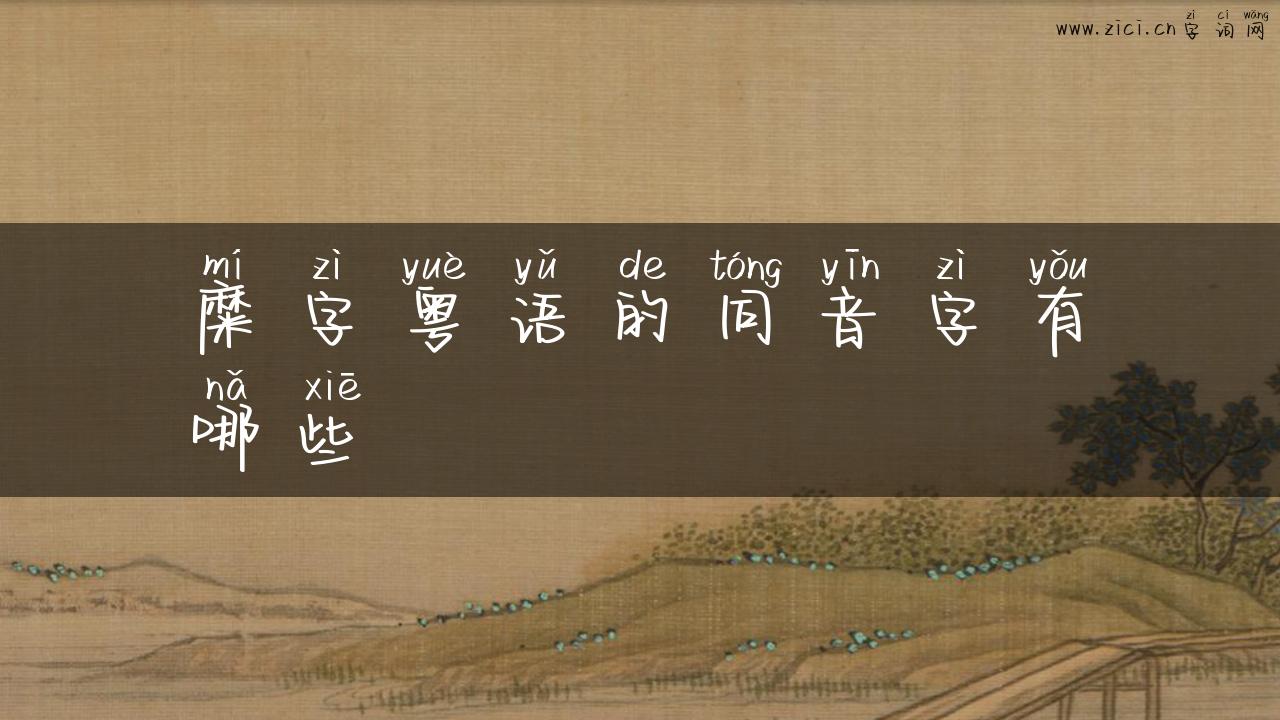 zì cí wǎng
www.zici.cn 字词网
mí zì yuè yǔ de tóng yīn zì yǒu
糜字粤语的同音字有
nǎ xiē
哪些